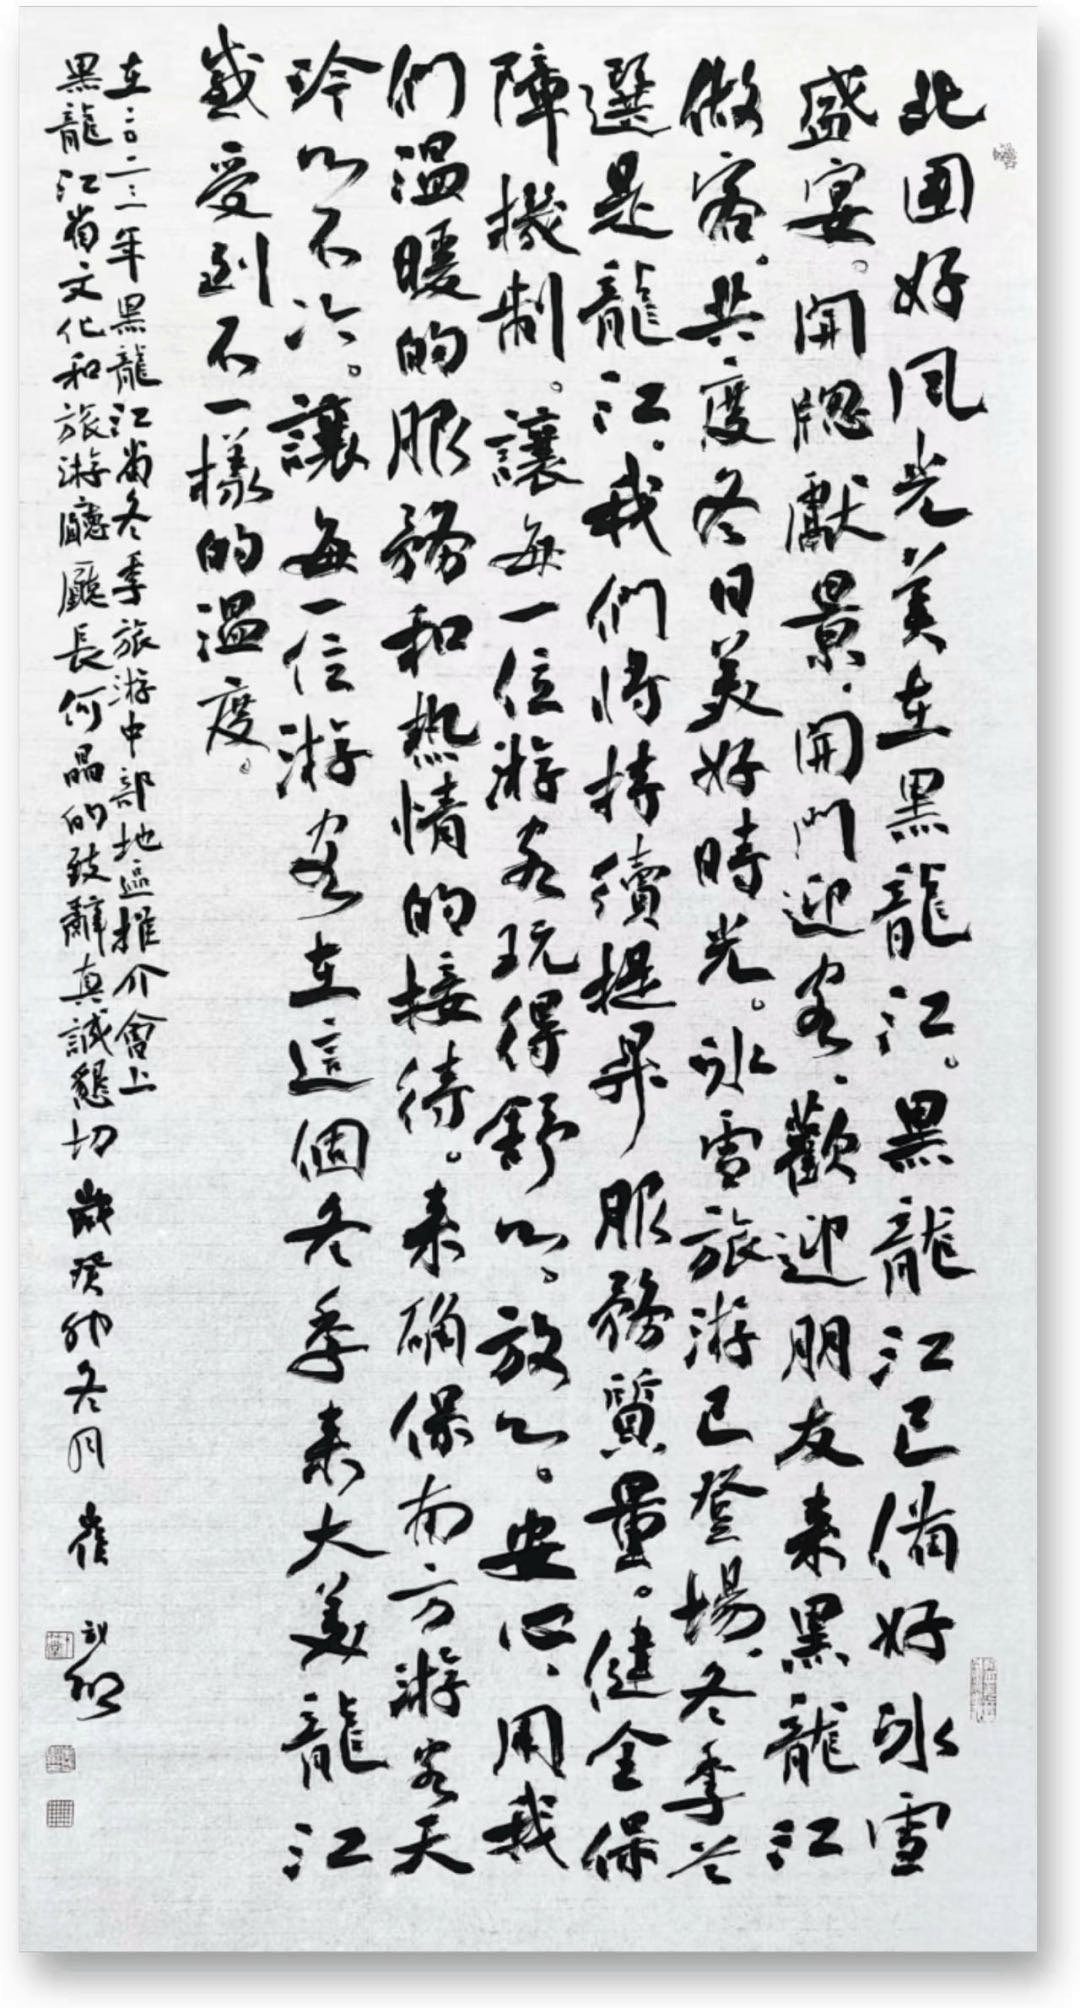 北国好风光美在黑龍江。黑龍江已備好冰雪
盛宴。開窗獻景、開門迎客、歡迎朋友来黑龍江
做客。共度冬日美好時光。冰雪旅游已登場、冬季首
選是龍江。我們将持續提昇服務質量。健全保
障機制。讓每一位游客玩得舒心。放心。安心、用我
們温暖的服務和热情的接待。来确保南方游客天
冷心不冷。讓每一位游客在這個冬季来大美龍江
感受到不一樣的温度。
在二〇二三年黑龍江省冬季旅游中部地區推介會上
黑龍江省文化和旅游廳廳長何晶的致辭真誠懇切 歲癸卯冬月 崔